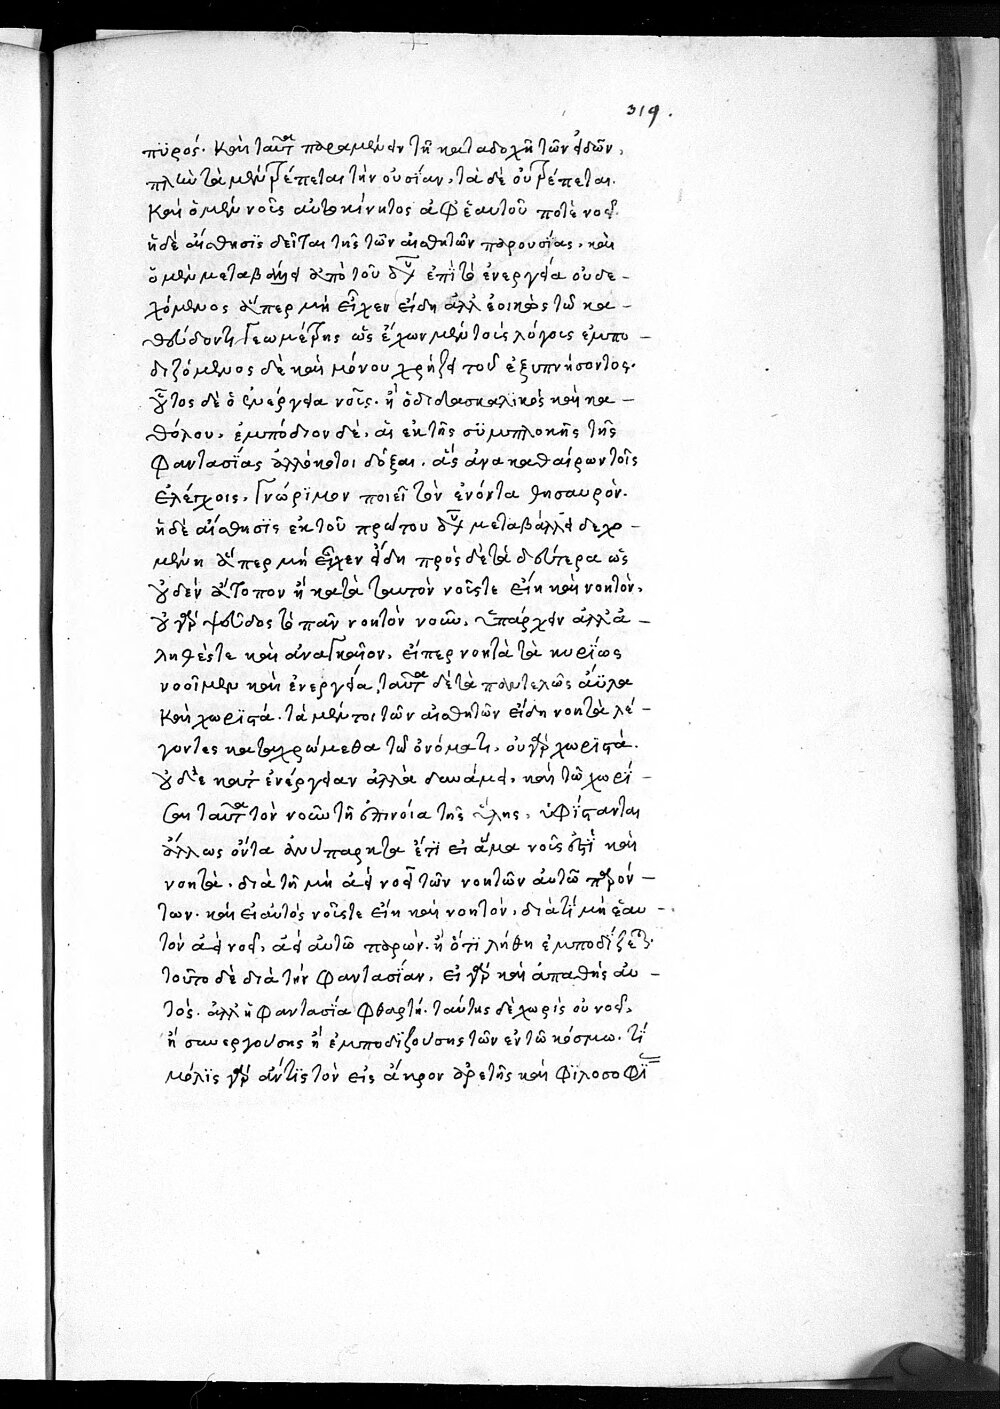 319.
πϋρός. καὶ ταῦτα παραμένειν τῆ καταδοχῆ τῶν εἰδῶν,
πλὴν τὰ μὲν τρέπεται τὴν οὐσίαν, τὰ δὲ οὐ τρέπεται.
καὶ ὁ μὲν νοῦς αὐτοκίνητος ἀφ ἑαυτοῦ ποτὲ νοεῖ.
ἡ δὲ αἴσθησϊς δεῖται τῆς τῶν αἰσθητῶν παρουσίας, καὶ
ὁ μὲν μεταβάλλει ἀπὸ τοῦ δυ ἐπὶ τὸ ἐνεργεία οὐ δε –
χόμενος ἅπερ μὴ εἶχεν εἴδη ἀλλ ἐοικὼς τῶ κα –
θεύδοντι γεωμέτρης ὡς ἔχων μὲν τοὺς λόγους ἐμπο –
διζόμενος δὲ καὶ μόνου χρήζει τοῦ ἐξυπνήσοντος.
οὗτος δὲ ὁ ἐνεργεία νοῦς. ἢ ὁ διδασκαλικὸς καὶ κα –
θόλου. ἐμπόδιον δὲ, αἱ ἐκ τῆς σϋμπλοκῆς τῆς
φαντασϊας ἀλλόκοτοι δόξαι. ἃς ἀνακαθαίρων τοῖς
ἐλέγχοις, γνώρϊμον ποιεῖ τὸν ἐνόντα θησαυρὸν.
ἡ δὲ αἴσθησϊς ἐκ τοῦ πρώτου δυ μεταβάλλει δεχο –
μένη ἅπερ μὴ εἶχεν εἴδη πρὸς δὲ τὰ δεύτερα ὡς
οὐδὲν ἄτοπον ἢ κατὰ ταυτὸν νοῦς τε εἴη καὶ νοητὸν,
οὐ γὰρ ψεῦδος τὸ πᾶν νοητὸν νοῦν, ὑπάρχειν ἀλλ ἀ –
ληθές τε καὶ ἀναγκαῖον, εἴπερ νοητὰ τὰ κυρϊως
νοοῖμεν καὶ ἐνεργεία, ταῦτα δὲ τὰ παντελῶς ἄϋλα
καὶ χωρϊστά. τὰ μέντοι τῶν αἰσθητῶν εἴδη νοητὰ λέ –
γοντες καταχρώμεθα τῶ ὀνόματι, οὐ γὰρ χωρϊστὰ.
οὐδὲ κατ ἐνέργειαν ἀλλὰ δυνάμει, καὶ τῶ χωρί –
σαι ταῦτα τὸν νοῦν τῆ ἐπινοία τῆς ὕλης, ὑφίστανται
ἄλλως ὄντα ἀνύπαρκτα ἔτϊ εἰ ἅμα νοῦς ἐστϊ καὶ
νοητὰ. διὰ τῆ μὴ ἀεὶ νοεῖ τῶν νοητῶν αὐτῶ παρόν –
των. καὶ εἰ αὐτὸς νοῦς τε εἴη καὶ νοητὸν, διὰ τί μὴ ἑαυ –
τὸν ἀεὶ νοεῖ, ἀεὶ αὐτῶ παρὼν. ἢ ὅτϊ λήθη ἐμποδίζεται.
τοῦτο δὲ διὰ τὴν φαντασϊαν, εἰ γὰρ καὶ ἀπαθὴς αὐ –
τὸς. ἀλλ ἡ φαντασϊα φθαρτή. ταύτης δὲ χωρὶς οὐ νοεῖ,
ἢ συνεργούσης ἢ ἐμποδϊζούσης τῶν ἐν τῶ κόσμω. τί
μόλϊς γὰρ ἄν τϊς τὸν εἰς ἄκρον ἀρετῆς καὶ φϊλοσοφϊ